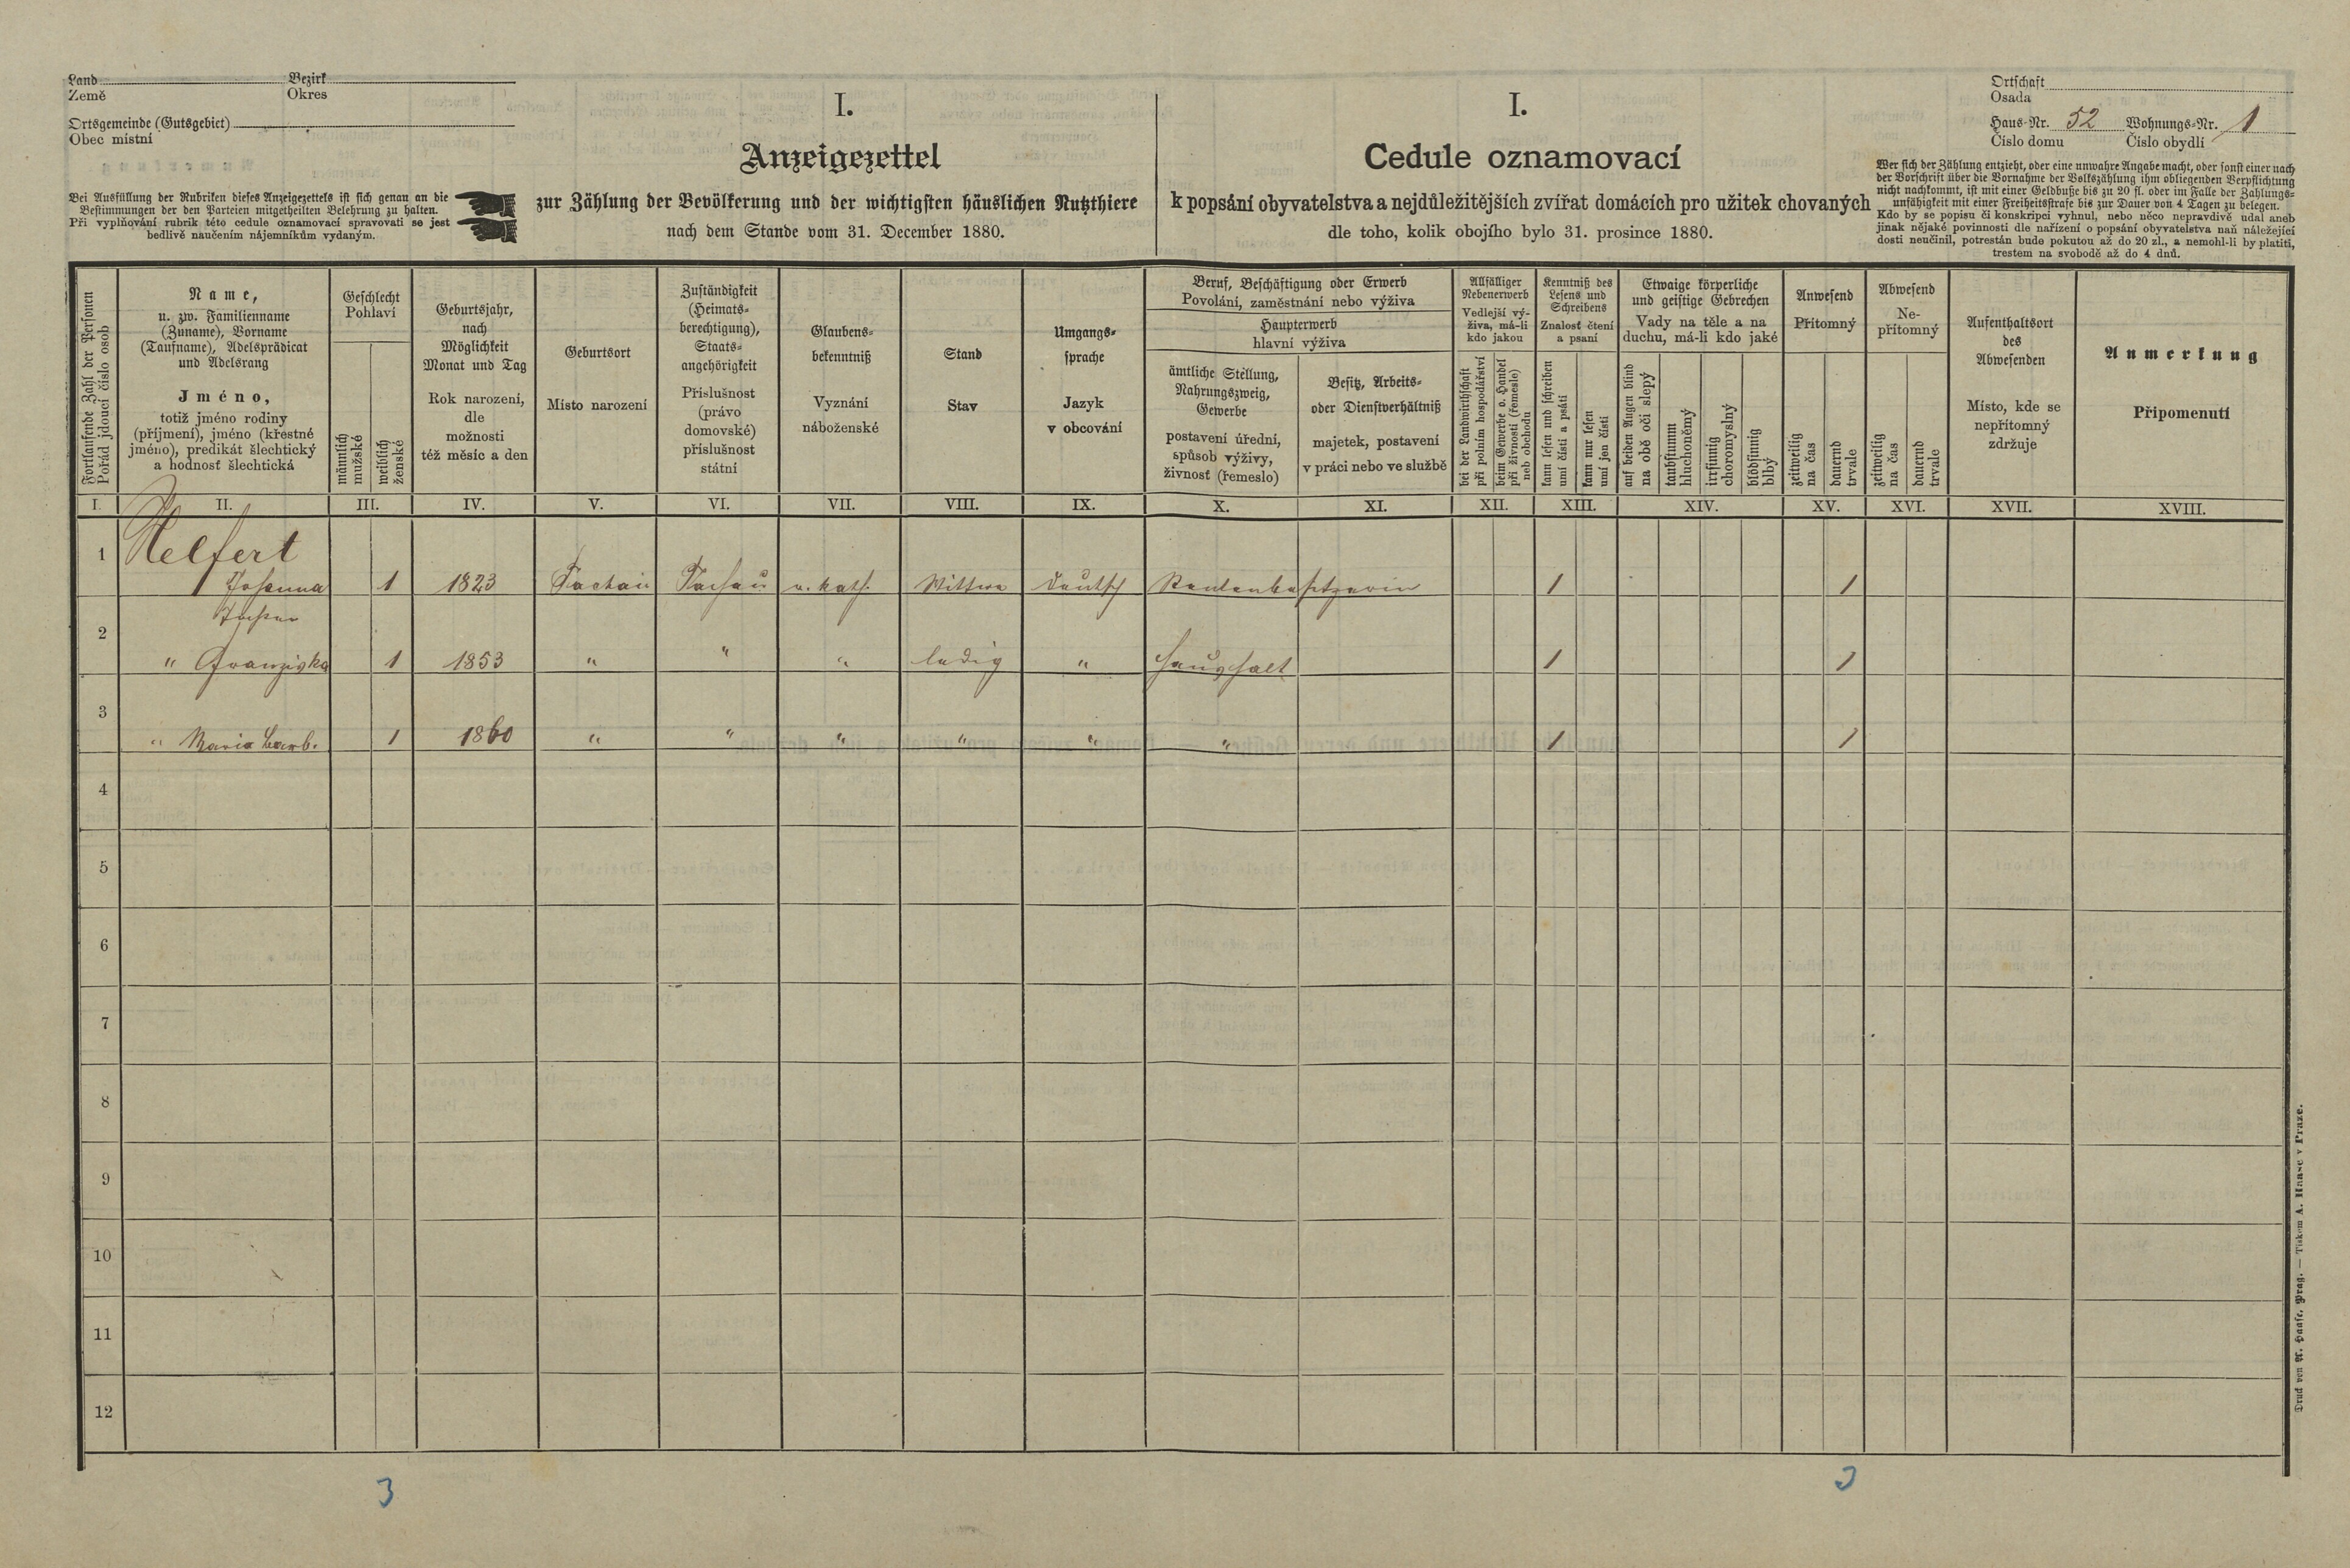 Land
Země
Bezirk
Okres
Ortsgemeinde (Gutsgebiet)
Obec místní
Bei Ausfüllung der Rubriken dieses Anzeigezettels ist sich genau an die
Bestimmungen der den Parteien mitgetheilten Belehrung zu halten.
Při vyplňování rubrik této cedule oznamovací spravovati se jest
bedlivě naučením nájemníkům vydaným.
I.
Anzeigezettel
zur Zählung der Bevölkerung und der wichtigsten häuslichen Nutzthiere
nach dem Stande vom 31. December 1880.
I.
Cedule oznamovací
k popsání obyvatelstva a nejdůležitějších zvířat domácích pro užitek chovaných
dle toho, kolik obojího bylo 31. prosince 1880.
Ortschaft
Osada
Haus-Nr. 52 Wohnungs-Nr. 1
Číslo domu Číslo obydlí
Wer sich der Zählung entzieht, oder eine unwahre Angabe macht, oder sonst einer nach
der Vorschrift über die Vornahme der Volkszählung ihm obliegenden Verpflichtung
nicht nachkommt, ist mit einer Geldbuße bis zu 20 fl. oder im Falle der Zahlungs-
unfähigkeit mit einer Freiheitsstrafe bis zur Dauer von 4 Tagen zu belegen.
Kdo by se popisu či konskripci vyhnul, nebo něco nepravdivě udal aneb
jinak nějaké povinnosti dle nařízení o popsání obyvatelstva naň náležející
dosti neučinil, potrestán bude pokutou až do 20 zl., a nemohl-li by platiti,
trestem na svobodě až do 4 dnů.
Fortlaufende Zahl der Personen
Pořád jdoucí číslo osob
Name,
u. zw. Familienname
(Zuname), Vorname
(Taufname), Adelsprädicat
und Adelsrang
Jméno,
totiž jméno rodiny
(příjmení), jméno (křestné
jméno), predikát šlechtický
a hodnosť šlechtická
Geschlecht
Pohlaví
männlich
mužské
weiblich
ženské
Geburtsjahr,
nach
Möglichkeit
Monat und Tag
Rok narození,
dle
možnosti
též měsíc a den
Geburtsort
Místo narození
Zuständigkeit
(Heimats-
berechtigung),
Staats-
angehörigkeit
Příslušnost
(právo
domovské)
příslušnost
státní
Glaubens-
bekenntniß
Vyznání
náboženské
Stand
Stav
Umgangs-
sprache
Jazyk
v obcování
Beruf, Beschäftigung oder Erwerb
Povolání, zaměstnání nebo výživa
Haupterwerb
hlavní výživa
ämtliche Stellung,
Nahrungszweig,
Gewerbe
postavení úřední,
spůsob výživy,
živnosť (řemeslo)
Besitz, Arbeits-
oder Dienstverhältniß
majetek, postavení
v práci nebo ve službě
Allfälliger
Nebenerwerb
Vedlejší vý-
živa, má-li
kdo jakou
bei der Landwirthschaft
při polním hospodářství
beim Gewerbe o. Handel
při živnosti (řemeslo)
neb obchodu
Kenntniß des
Lesens und
Schreibens
Znalosť čtení
a psaní
kann lesen und schreiben
umí čísti a psáti
kann nur lesen
umí jen čísti
Etwaige körperliche
und geistige Gebrechen
Vady na těle a na
duchu, má-li kdo jaké
auf beiden Augen blind
na obě oči slepý
taubstumm
hluchoněmý
irrsinnig
choromyslný
blödsinnig
blbý
Anwesend
Přítomný
zeitweilig
na čas
dauernd
trvale
Abwesend
Ne-
přítomný
zeitweilig
na čas
dauernd
trvale
Aufenthaltsort
des
Abwesenden
Místo, kde se
nepřítomný
zdržuje
Anmerkung
Připomenutí
I. II. III. IV. V. VI. VII. VIII. IX. X. XI. XII. XIII. XIV. XV. XVI. XVII. XVIII.
1 Helfert
Johanna 1 1823 Tachau Tachau r. kath. Wittwe deutsch Rentenbesitzerin 1 1
2
" Franziska 1 1853 " " " ledig " Haushalt 1 1
3
" Maria Barb. 1 1860 " " " " " " 1 1
4
5
6
7
8
9
10
11
12
3 3
Druck von A. Haase, Prag. — Tiskem A. Haase v Praze.